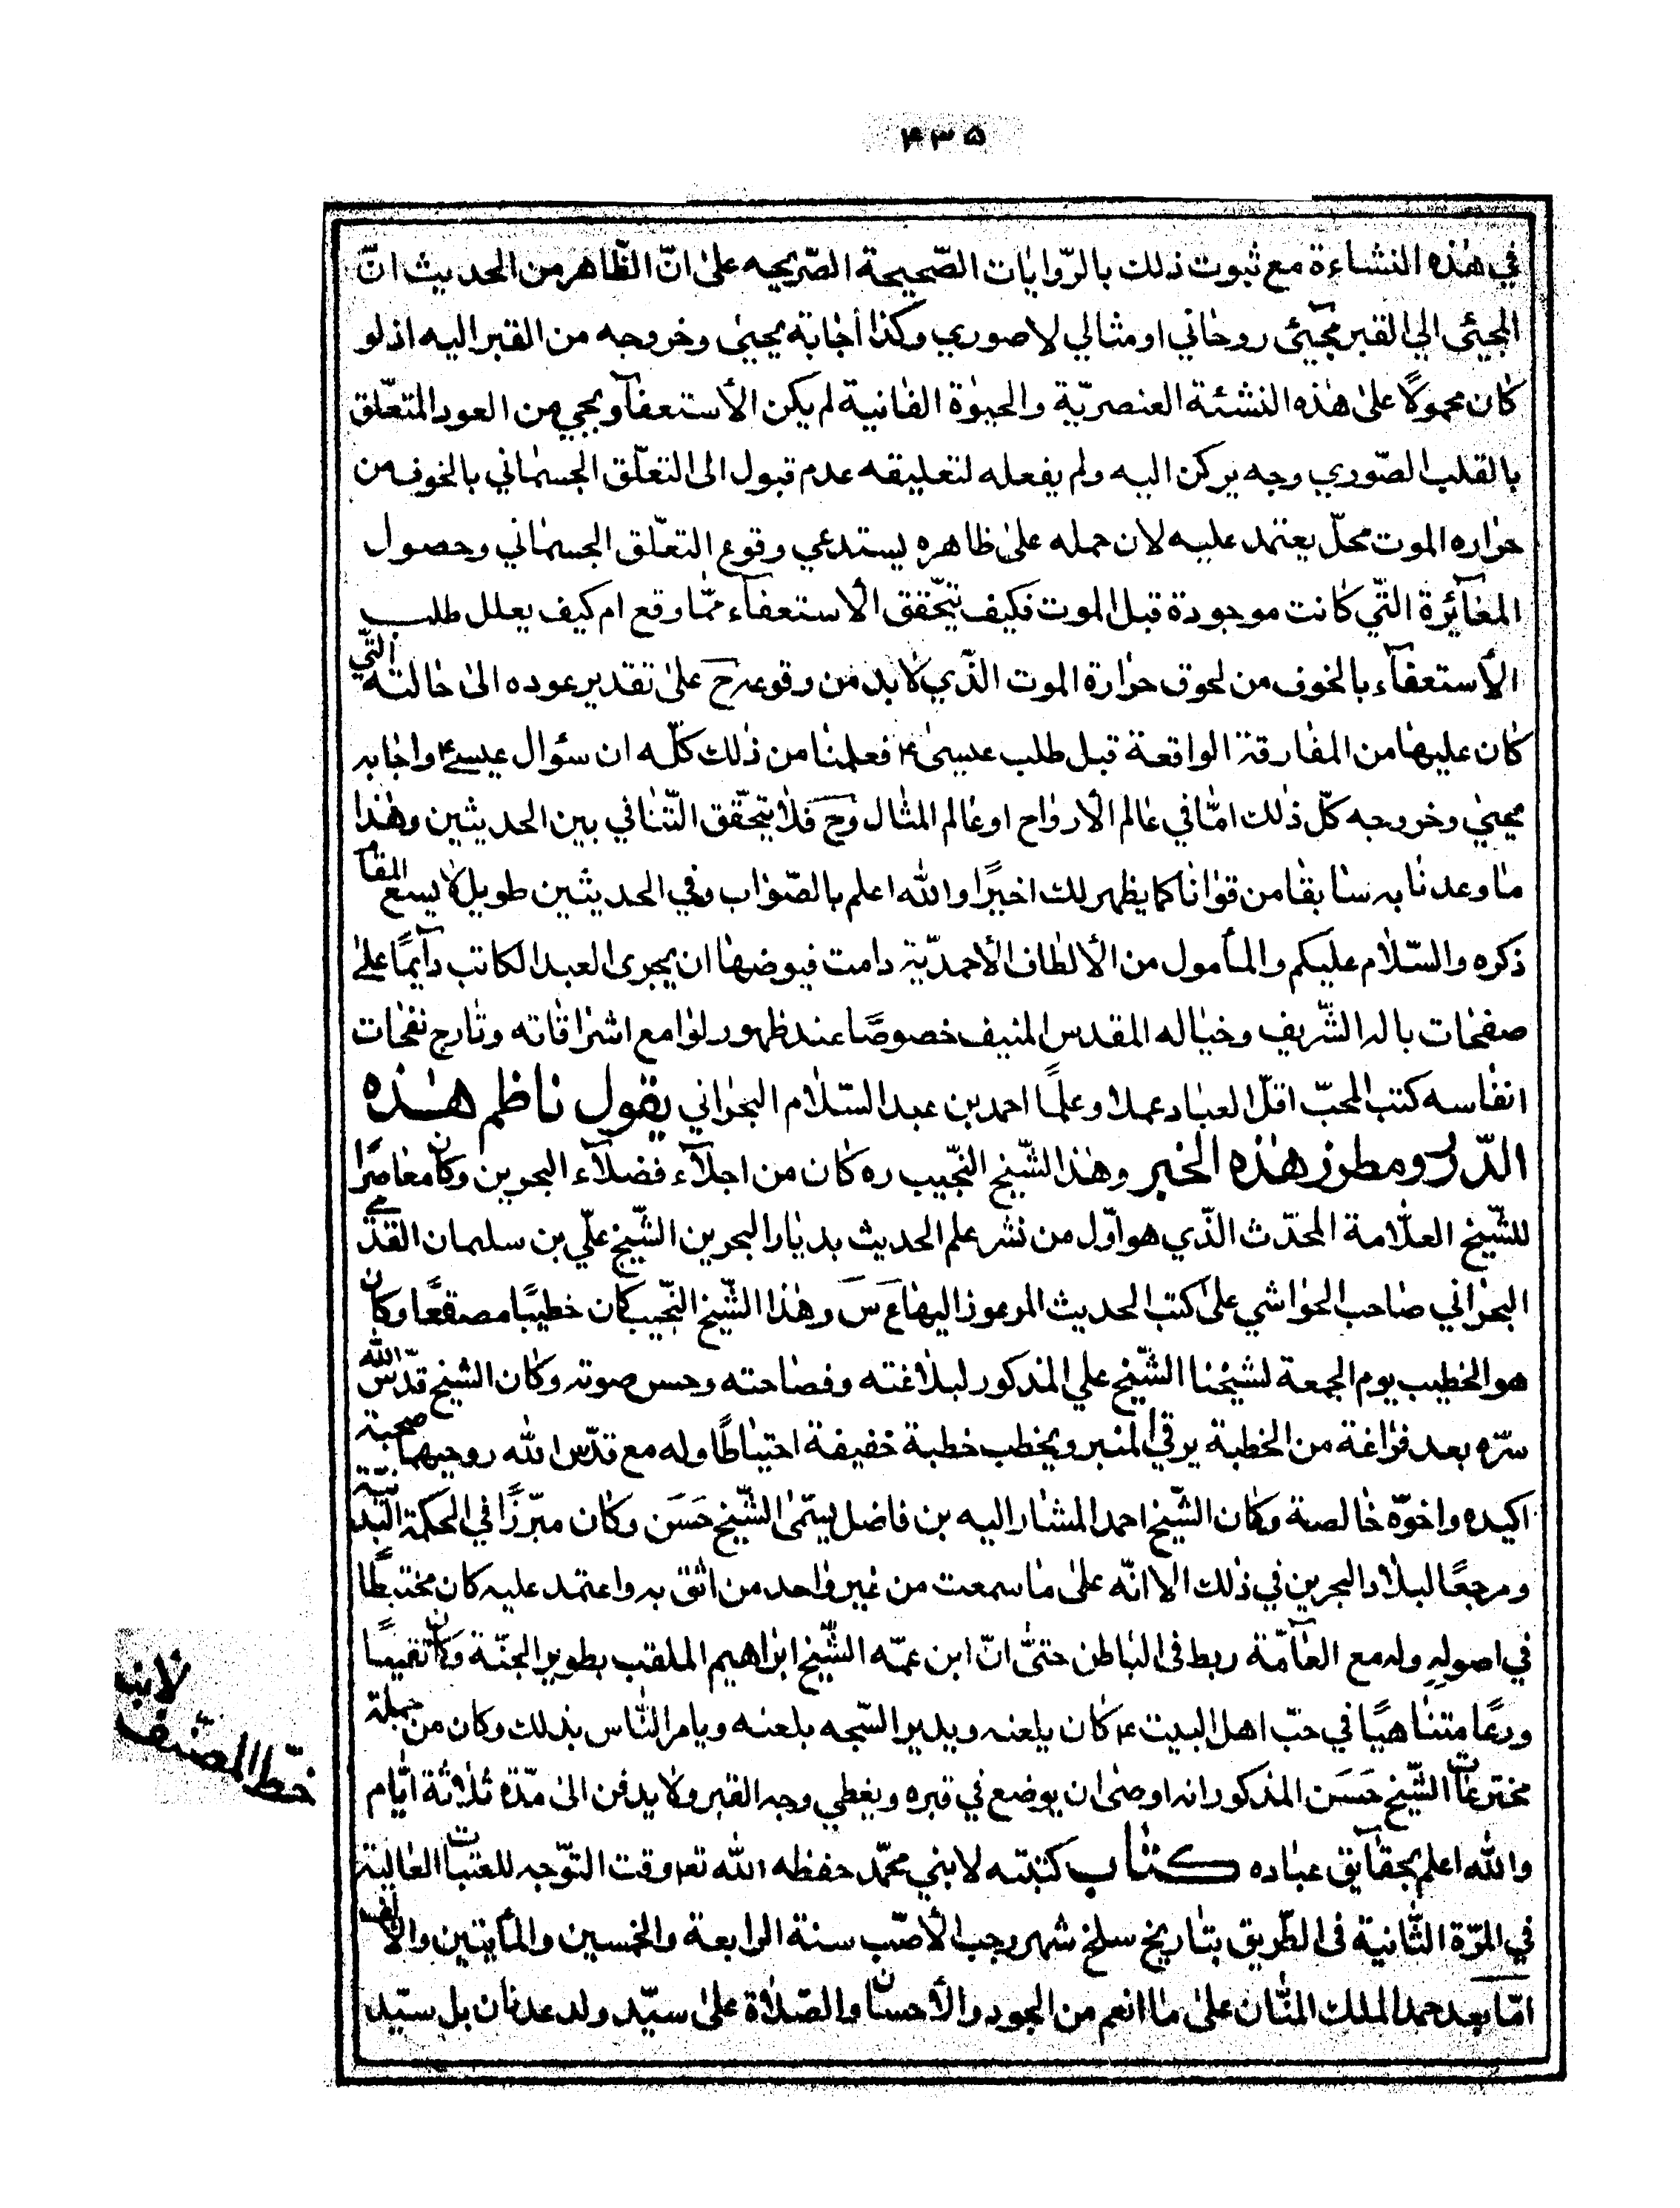 ۴۳۵
في هٰذه النشاءة مع ثبوت ذلك بالرّوايات الصّحيحة الصّريحيه علىٰ انّ الظّاهر من الحديث انّ
المجيئى الى القبر مجيئى روحاني او مثالي لا صوري وكذا أجابة يحيىٰ وخروجه من القبر اليه اذ لو
كان محمولًا علىٰ هٰذه النشئة العنصريّة والحيوٰة الفانية لم يكن الأستعفآ ويجي من العود المتعلّق
بالقلب الصّوري وجه يركن اليه ولم يفعله لتعليقه عدم قبول الى التعلّق الجسماني بالخوف من
حراره الموت محلّ يعتمد عليه لان حمله علىٰ ظاهره يستدعي وقوع التعلّق الجسماني وحصول
المغآئرة التّي كانت موجودة قبل الموت فكيف يتحّقق الأستعفآء ممّا وقع ام كيف يعلل طلب
الأستعفآء بالخوف من لحوق حرارة الموت الذّي لابد من وقوعه ح علىٰ تقدير عوده الىٰ حالته التّي
كان عليها من المفارقة الواقعة قبل طلب عيسىٰ ع فعلمنا من ذٰلك كلّه ان سؤال عيسے ع واجابه
يحيىٰ وخروجه كلّ ذٰلك امّا في عالم الأرواح او عالم المثال وح فلا يتحّقق التّنافي بين الحديثين وهٰذا
ما وعدنا به سابقا من قوانا كما يظهر لك اخيرًا والله اعلم بالصّواب وفي الحديثين طويل لا يسع المقآ
ذكره والسّلام عليكم والمأمول من الألطاف الأحمديّة دامت فيوضها ان يجرى العبد الكاتب دآيمًا علىٰ
صفحات باله الشّريف وخياله المقدس المنيف خصوصًا عند ظهور لوامع اشراقاته وتارج نفحات
انفاسه كتب المحبّ اقلّ العباد عملا وعلمًا احمد بن عبد السّلام البحراني يقول ناظم هٰذه
الدّرر ومطرز هٰذه الخبر وهٰذا الشّيخ النّجيب ره كان من اجلآء فضلآء البحرين وكان معاصرًا
للشّيخ العلّامة المحدّث الذّي هو اوّل من نشر علم الحديث بديار البحرين الشّيخ علّي بن سليمان القدمے
البحراني صاحب الحواشي علىٰ كتب الحديث المرموز اليها ع س وهٰذا الشّيخ النّجيب كان خطيبًا مصقعًا وكان
هو الخطيب يوم الجمعة لشيخنا الشّيخ علي المذكور لبلاغته وفصاحته وحسن صوته وكان الشيخ قدّس الله
سرّه بعد فراغة من الخطبة يرقي المنبر ويخطب خطبة خفيفة احتياطًا وله مع قدّس الله روحيهما صحبة
اكيده واخوّه خالصة وكان الشّيخ احمد المشار اليه بن فاضل يسمّىٰ الشّيخ حَسَن وكان مبرّزًا في الحكمة البدنيّة
ومرجعًا لبلاد البحرين في ذٰلك الا انّه علىٰ ما سمعت من غير واحد من اثق به واعتمد عليه كان مختبطًا
في اصوله وله مع العآمّة ربط في الباطن حتىّٰ انّ ابن عمّه الشّيخ ابراهيم الملقب بطوير الجنّة وكان تقيسًا
ورعًا متناهيًا في حبّ اهل البيت ع كان يلعنه ويدير السّبحه بلعنه ويامر النّاس بذلك وكان من جملة
مخترعات الشّيخ حَسَن المذكور انه اوصىٰ ان يوضع في قبره ويغطي وجه القبر ولا يدفن الىٰ مدّة ثلاثة ايّام
والله اعلم بحقآيق عباده كتاب كتبته لابني محمّد حفظه الله تع وقت التوّجه للعتبات العالية
في المرّة الثّانية في الطّريق بتاريخ سلخ شهر رجب الأصبّ سنة الرابعة والخمسين والمأيتين والألف
امّا بعد حمد الملك المنّان علىٰ ما انعم من الجود والأحسان والصّلاة علىٰ سيّد ولد عدنان بل سيّد
لابنه
خطّ المصنّف